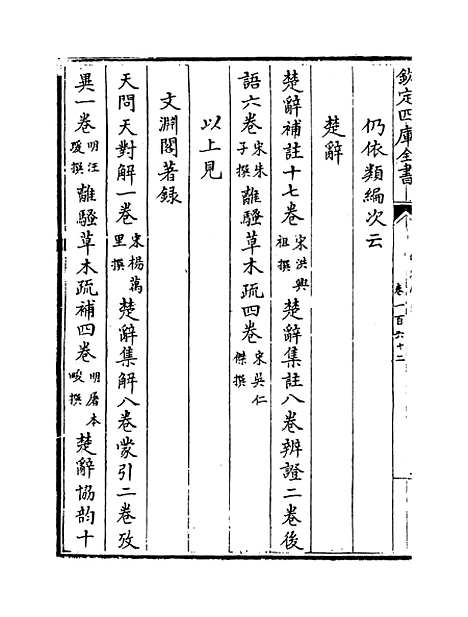 欽定四庫全書
卷一百六十二
仍依類編次云
楚辭
楚辭補註十七卷宋洪興祖撰楚辭集註八卷辨證二卷後
語六卷宋朱子撰離騷草木疏四卷宋吳仁傑撰
以上見
文淵閣著錄
天問天對解一卷宋楊萬里撰楚辭集解八卷蒙引二卷攷
異一卷明汪瑗撰離騷草木疏補四卷明屠本畯撰楚辭協韵十